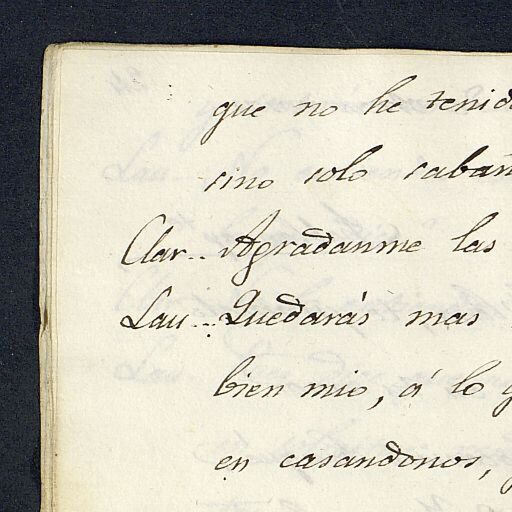 que no he tenid
sino solo cabañ
Clar.. Agradanme las
Lau... Quedarás mas
bien mio, á lo q
en casandonos,